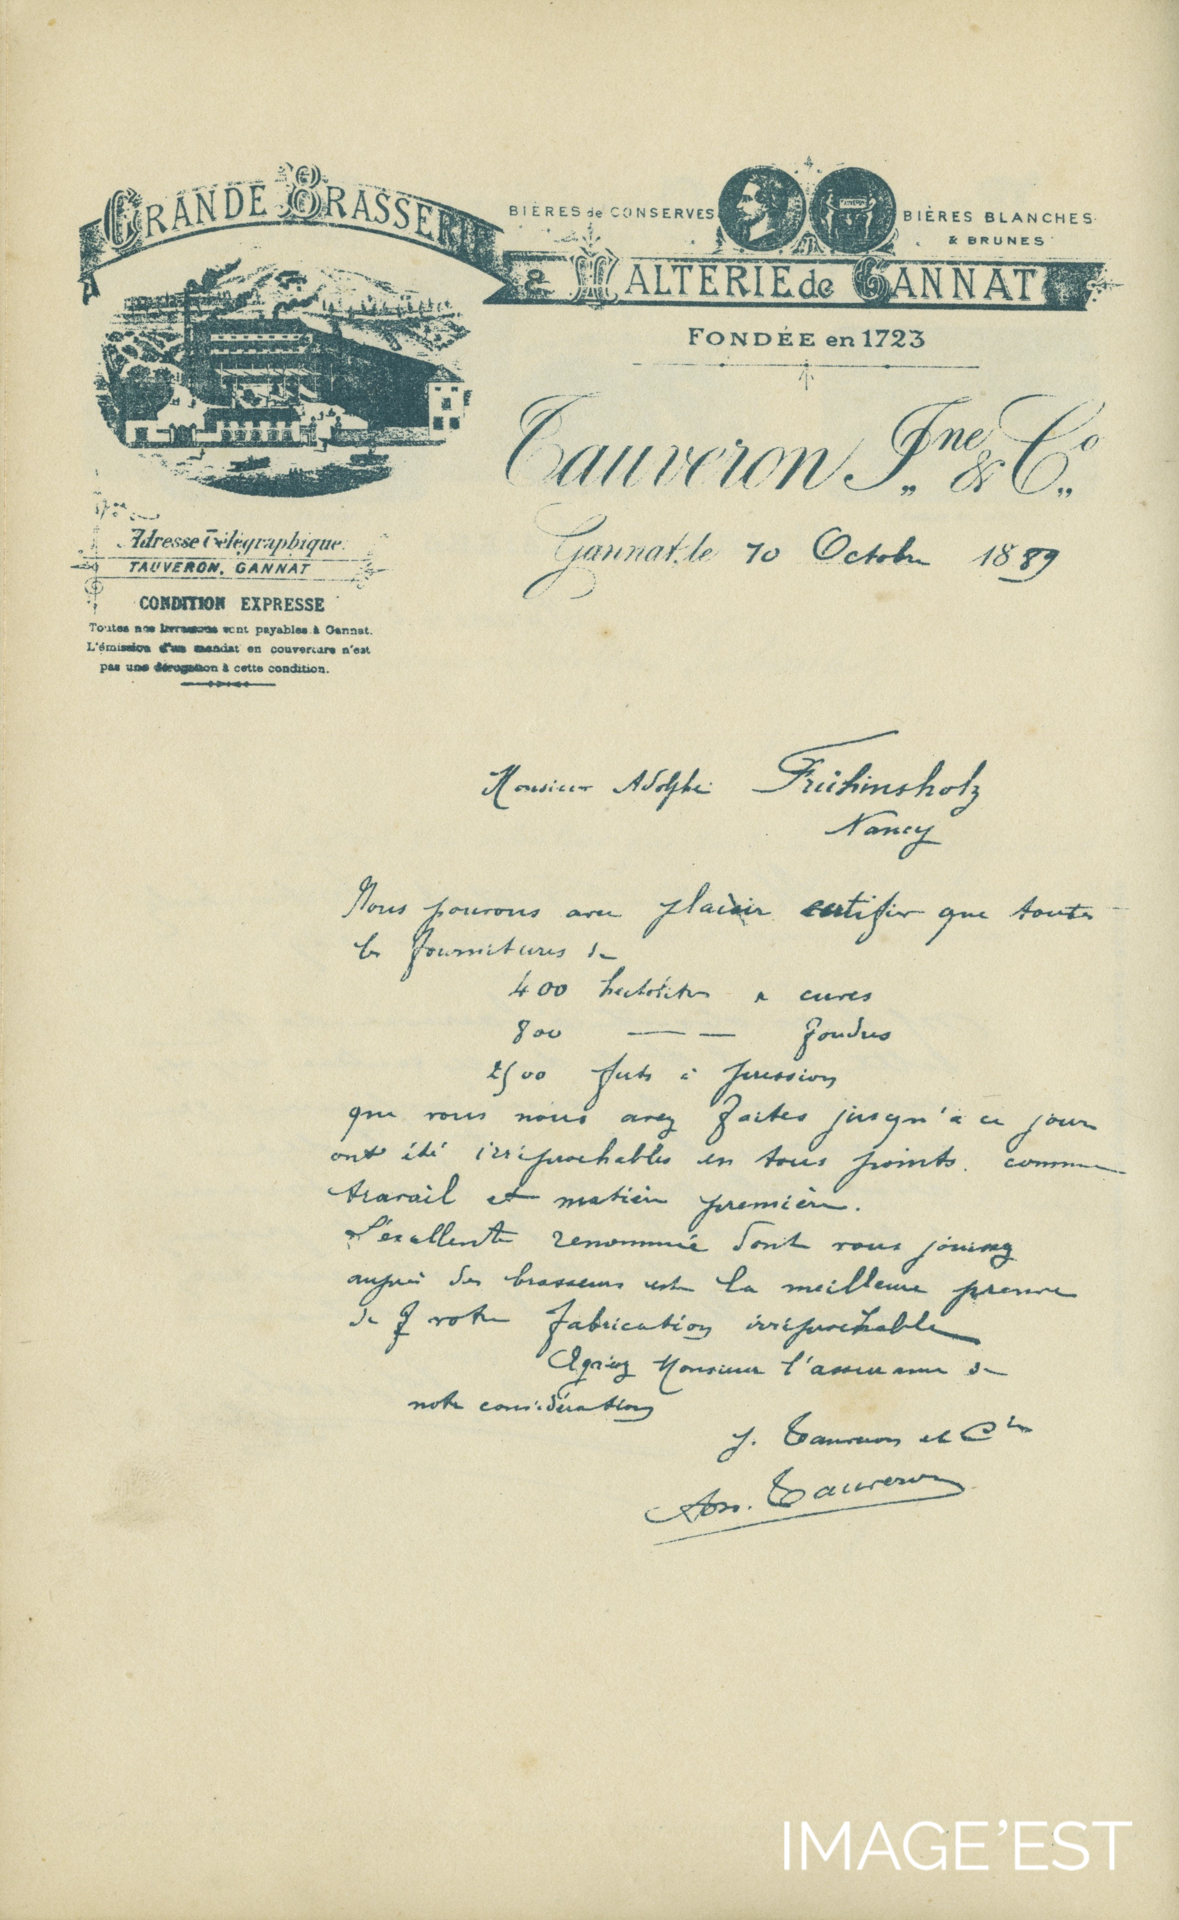 GRANDE BRASSERIE
BIÈRES de CONSERVES
BIÈRES BLANCHES
& BRUNES
& MALTERIE de GANNAT
FONDÉE en 1723
Tauveron Jne & Co
Gannat, le 10 Octobre 1889
Adresse Télégraphique:
TAUVERON, GANNAT
CONDITION EXPRESSE
Toutes nos livraisons sont payables à Gannat.
L'émission d'un mandat en couverture n'est
pas une dérogation à cette condition.
Monsieur Adolphe Frühinsholz
Nancy
Nous pouvons avec plaisir certifier que toutes
les fournitures de
400 hectolitres cuves
800 — — foudres
2500 futs à pression
que vous nous avez faites jusqu'à ce jour
ont été irréprochables en tous points comme
travail et matière première.
L'excellente renommée dont vous jouissez
auprès des brasseurs est la meilleure preuve
de votre fabrication irréprochable
Agréez Monsieur l'assurance de
notre considération
J. Tauveron et Cie
Tauveron
IMAGE'EST